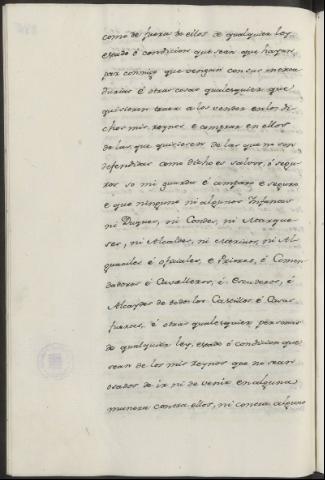 como de fuera de ellos de qualquier ley
estado ó condicion que sean que hayan
paz conmigo que vengan con sus merca
durias é otras cosas qualesquier que
quisieren traer a los vender en los di
chos mis reynos e comprar en ellos
de las que quisieren de las que no son
defendidas como dicho es salvos, é segu
ros so mi guarda é amparo e seguro
é que ninguno ni algunos Infantes
ni Duques, ni Condes, ni Marque
ses, ni Alcaldes, ni Merinos, ni Al
guaciles é oficiales, e Priores, é Comen
dadores é Cavalleros, é Escuderos, é
Alcaydes de todos los Castillos é Casas
fuertes, é otras qualesquier personas
de qualquier ley, estado ó condicion que
sean de los mis reynos que no sean
osados de ir ni de venir en alguna
manera contra ellos, ni contra alguno